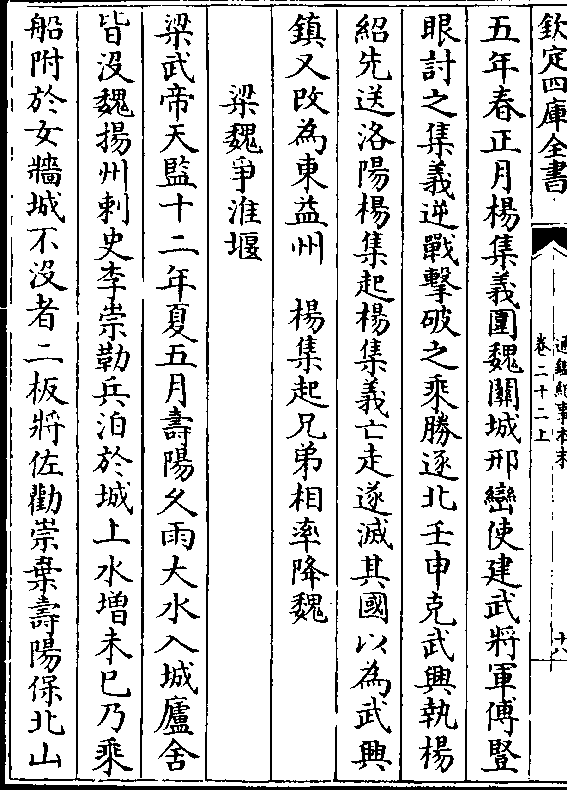 欽定四庫全書
通鑑紀事本末
卷二十二上
十八
五年春正月楊集義圍魏關城邢巒使建武將軍傅豎
眼討之集義逆戰擊破之乘勝逐北壬申克武興執楊
紹先送洛陽楊集起楊集義亡走遂滅其國以為武興
鎮又改為東益州　楊集起兄弟相率降魏
梁魏爭淮堰
梁武帝天監十二年夏五月壽陽乆雨大水入城廬舍
皆沒魏揚州刺史李崇勒兵泊於城上水增未已乃乘
船附於女牆城不沒者二板將佐勸崇棄壽陽保北山